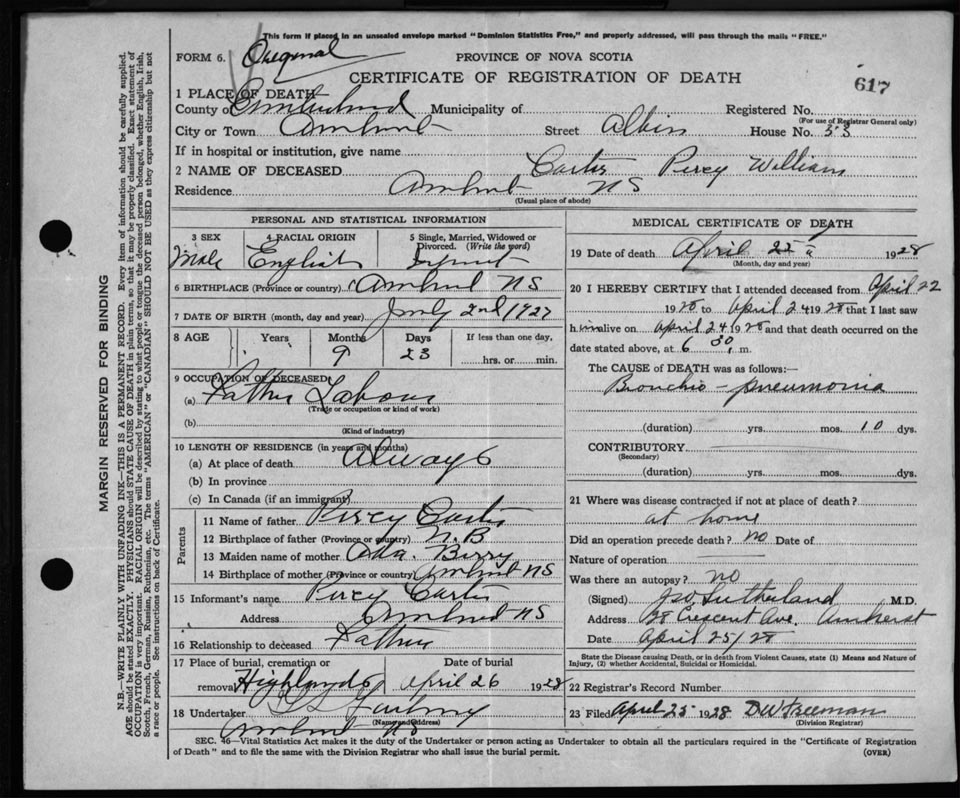 This form if placed in an unsealed envelope marked "Dominion Statistics Free," and properly addressed, will pass through the mails "FREE."
FORM 6. Original
PROVINCE OF NOVA SCOTIA
CERTIFICATE OF REGISTRATION OF DEATH
617
1 PLACE OF DEATH
County of Cumberland Municipality of Registered No.
(For use of Registrar General only)
City or Town Amherst Street Albion House No. 53
If in hospital or institution, give name
2 NAME OF DECEASED Carter Percy William
Residence Amherst NS
(Usual place of abode)
PERSONAL AND STATISTICAL INFORMATION
3 SEX Male
4 RACIAL ORIGIN English
5 Single, Married, Widowed or Divorced. (Write the word) Infant
6 BIRTHPLACE (Province or country) Amherst NS
7 DATE OF BIRTH (month, day and year) July 2nd 1927
8 AGE Years Months Days If less than one day,
9 23 hrs. or min.
9 OCCUPATION OF DECEASED
(a) Father Labour
(Trade or occupation or kind of work)
(b)
(Kind of industry)
10 LENGTH OF RESIDENCE (in years and months)
(a) At place of death Always
(b) In province
(c) In Canada (if an immigrant)
Parents
11 Name of father Percy Carter
12 Birthplace of father (Province or country) N.B
13 Maiden name of mother Ada. Berry
14 Birthplace of mother (Province or country) Amherst NS
15 Informant's name Percy Carter
Address Amherst NS
16 Relationship to deceased Father
17 Place of burial, cremation or Date of burial
removal Highlands April 26 1928
18 Undertaker
(Name and Address)
Amherst NS
MEDICAL CERTIFICATE OF DEATH
19 Date of death April 25 1928
(Month, day and year)
20 I HEREBY CERTIFY that I attended deceased from April 22
1928 to April 24 1928 that I last saw
him alive on April 24 1928 and that death occurred on
date stated above, at 6 30 m.
The CAUSE of DEATH was as follows:—
Broncho-pneumonia
(duration) yrs. mos. 10 dys.
CONTRIBUTORY
(Secondary)
(duration) yrs. mos. dys.
21 Where was disease contracted if not at place of death?
at home
Did an operation precede death? no Date of
Nature of operation
Was there an autopsy? no
(Signed) Sutherland M.D.
Address 128 Crescent Ave. Amherst
Date April 25/28
State the Disease causing Death, or in death from Violent Causes, state (1) Means and Nature of
Injury, (2) whether Accidental, Suicidal or Homicidal.
22 Registrar's Record Number
23 Filed April 25 1928 DW Freeman
(Division Registrar)
SEC. 46—Vital Statistics Act makes it the duty of the Undertaker or person acting as Undertaker to obtain all the particulars required in the "Certificate of Registration
of Death" and to file the same with the Division Registrar who shall issue the burial permit. (OVER)
MARGIN RESERVED FOR BINDING
N.B.—WRITE PLAINLY WITH UNFADING INK—THIS IS A PERMANENT RECORD. Every item of information should be carefully supplied.
AGE should be stated EXACTLY. PHYSICIANS should STATE CAUSE OF DEATH in plain terms, so that it may be properly classified. Exact statement of
OCCUPATION is very important. RACIAL ORIGIN will be described by stating to what people or tongue the deceased person belonged, whether English, Irish,
Scotch, French, German, Russian, Ruthenian, etc. The terms "AMERICAN" or "CANADIAN" SHOULD NOT BE USED as they express citizenship but not
a race or people. See instructions on back of Certificate.